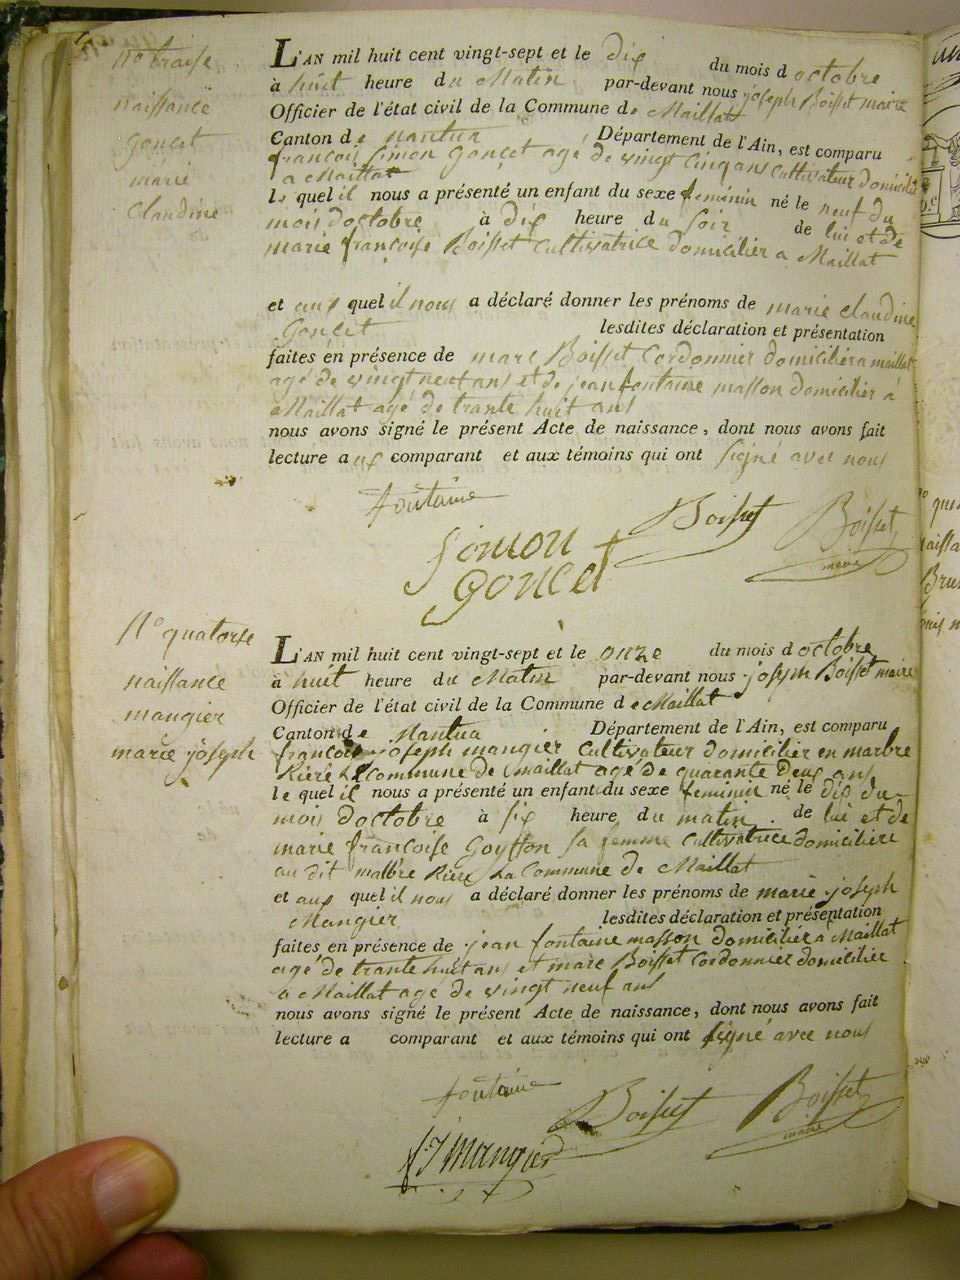 n° traise
naissance
goncet
marie
Claudine
L'AN mil huit cent vingt-sept et le dix du mois d octobre
à huit heure du Matin par-devant nous joseph Boisset maire
Officier de l'état civil de la Commune de Maillat
Canton de nantua Département de l'Ain, est comparu
françois Simon goncet agé de vingt cinq ans cultivateur domicilié
a Maillat
le quel il nous a présenté un enfant du sexe feminin né le neuf du
mois doctobre à dix heure du soir de lui et de
marie françoise Boisset cultivatrice domicilier a Maillat
et aux quel il nous a déclaré donner les prénoms de marie claudine
Goncet lesdites déclaration et présentation
faites en présence de marc Boisset Cordonnier domicilier a maillat
agé de vingt neuf ans et de jean fontaine masson domicilier à
Maillat agé de trante huit ans
nous avons signé le présent Acte de naissance, dont nous avons fait
lecture aux comparant et aux témoins qui ont signé avec nous
fontaine
Boisset
Boisset
maire
Simon
goncet
N° quatorse
naissance
mangier
marie joseph
L'AN mil huit cent vingt-sept et le onze du mois d octobre
à huit heure du Matin par-devant nous joseph Boisset maire
Officier de l'état civil de la Commune de Maillat
Canton de Nantua Département de l'Ain, est comparu
françois joseph mangier Cultivateur domicilier en marbre
Riere La Commune de maillat agé de quarante deux ans
le quel il nous a présenté un enfant du sexe feminin né le dix du
mois doctobre à six heure du matin de lui et de
marie françoise Goyffon sa femme Cultivatrice domiciliere
au dit malbre Riere La Commune de Maillat
et aux quel il nous a déclaré donner les prénoms de marie joseph
Mangier lesdites déclaration et présentation
faites en présence de jean fontaine masson domicilier à Maillat
agé de trante huit ans et marc Boisset Cordonnier domicilier
a Maillat agé de vingt neuf ans
nous avons signé le présent Acte de naissance, dont nous avons fait
lecture a comparant et aux témoins qui ont signé avec nous
fontaine
Boisset
Boisset
maire
fJ mangier